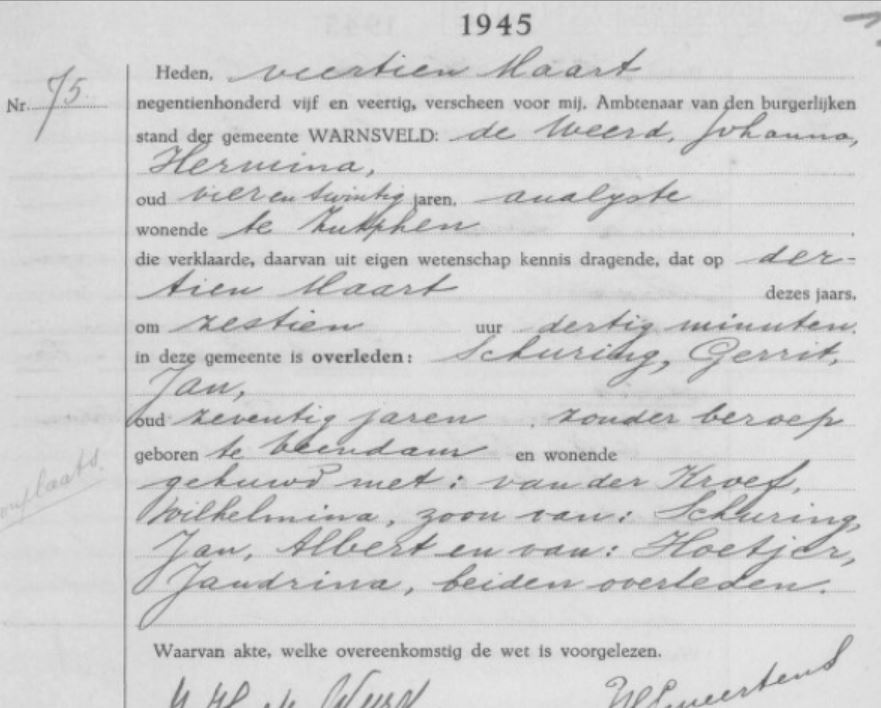 1945
Heden, veertien Maart
Nr. 75. negentienhonderd vijf en veertig, verscheen voor mij, Ambtenaar van den burgerlijken
stand der gemeente WARNSVELD: de Weerd, Johanna,
Hermina,
oud vier en twintig jaren, analyste
wonende te Zutphen
die verklaarde, daarvan uit eigen wetenschap kennis dragende, dat op der-
tien Maart dezes jaars,
om zestien uur dertig minuten.
in deze gemeente is overleden: Schuring, Gerrit,
Jan,
oud zeventig jaren, zonder beroep
geboren te Veendam en wonende
gehuwd met: van der Kroef,
Wilhelmina, zoon van: Schuring,
Jan, Albert en van: Hoetjer,
Jandrina, beiden overleden.
Waarvan akte, welke overeenkomstig de wet is voorgelezen.